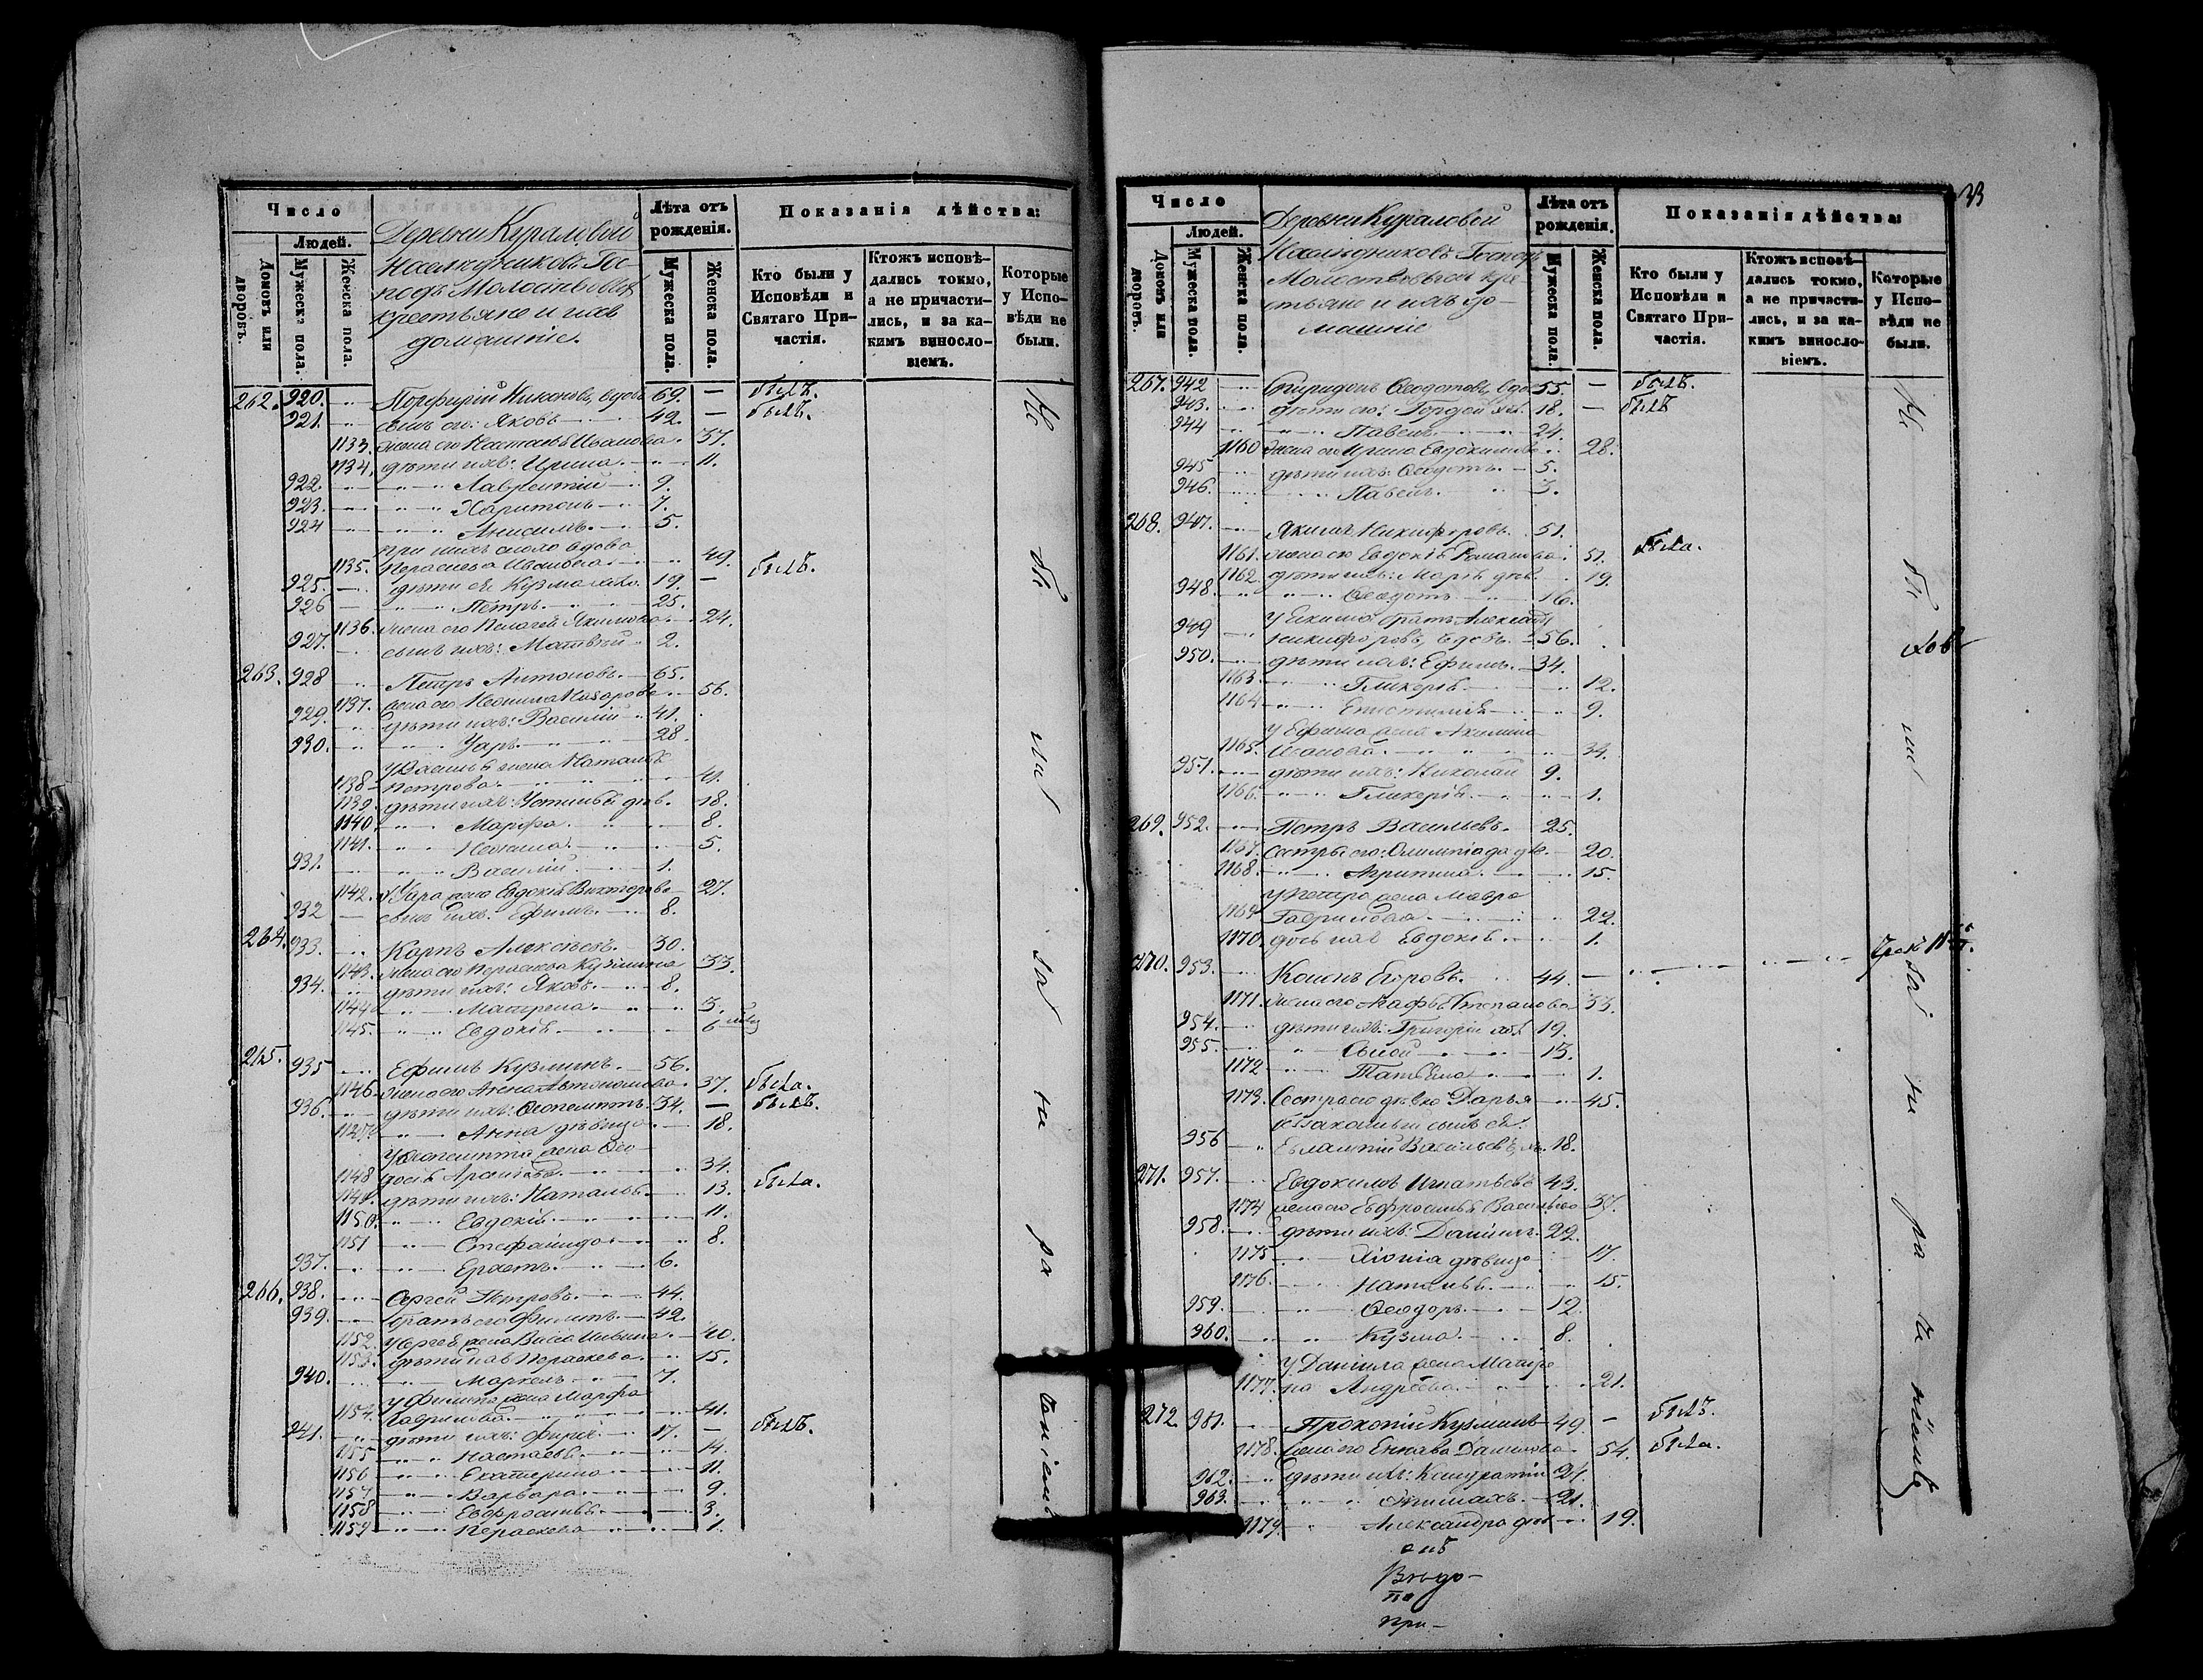 Число
Людей.
Домовъ или дворовъ.
Мужеска пола.
Женска пола.
Деревни Кураловой
Наслѣдниковъ Гос-
подъ Молоствовыхъ
крестьяне и ихъ
домашніе.
Лѣта отъ рожденія.
Мужеска пола.
Женска пола.
Показанія дѣйства:
Кто были у Исповѣди и Святаго Причастія.
Ктожъ исповѣдались токмо, а не причастились, и за какимъ винословіемъ.
Которые у Исповѣди не были.
262. 920. Порфирій Никоновъ, вдовъ 69. — былъ.
921. сынъ его: Яковъ 42. — былъ.
1133. жена его Настасья Иванова 37.
1134. дѣти ихъ: Ирина 11.
922. Лаврентій 9.
923. Харитонъ 7.
924 Анисимъ 5.
при нихъ сноха вдова
1135. Параскева Иванова 49.
925. дѣти ея Кузма 19. — былъ.
926 Петръ 25.
1136. жена его Пелагея Якимова 24.
927. сынъ ихъ: Матвѣй 2.
263. 928 Петръ Антоновъ 65.
1137. жена его Неонила Назарова 56.
929. дѣти ихъ: Василій 41.
930. Уаръ 28.
у Василья жена Наталья
1138 Петрова 41.
1139. дѣти ихъ: Устинья дѣв. 18.
1140. Марфа 8.
1141. Неонила 5.
931. Василій 1.
1142. у Уара жена Евдокія Викторова 27.
932 сынъ ихъ: Ефимъ 8.
264. 933. Карпъ Алексѣевъ 30.
1143. жена его Параскева Кузмина 33.
934. дѣти ихъ: Яковъ 8.
1144 Матрена 3.
1145. Евдокія 6
265. 935 Ефимъ Кузминъ 56.
1146 жена его Анна 37. была.
936. дѣти ихъ: Ѳеопемптъ 34. — былъ.
1147. Анна дѣвица 18.
у Ѳеопемпта жена Ѳео-
1148 досья 34.
1149. дѣти ихъ: Наталья 13. была.
1150. Евдокія 11.
1151 Стефанида 8.
937. Ерастъ 6.
266. 938. Сергей Петровъ 44.
939. братъ его Филипъ 42.
1152. у Сергея жена Васса 40.
1153. дѣти ихъ Параскева 15.
940. Маркелъ 7.
у Филипа жена Марфа
1154. Гаврилова 41.
941. дѣти ихъ: Фирсъ 17. — былъ.
1155 Настасья 14.
1156 Екатерина 11.
1157 Варвара 9.
1158 Евфросинья 3.
1159 Параскева 1.
Число
Людей.
Домовъ или дворовъ.
Мужеска пола.
Женска пола.
Деревни Кураловой
Наслѣдниковъ Господъ
Молоствовыхъ кре-
стьяне и ихъ до-
машніе
Лѣта отъ рожденія.
Мужеска пола.
Женска пола.
Показанія дѣйства:
Кто были у Исповѣди и Святаго Причастія.
Ктожъ исповѣдались токмо, а не причастились, и за какимъ винословіемъ.
Которые у Исповѣди не были.
267. 942 Спиридонъ Ѳедотовъ, вдов. 55. — былъ.
943. дѣти его: Гордей хол. 18. — былъ
944 Павелъ 24.
1160 жена его Ирина Евдокимова 28.
945 дѣти ихъ: Ѳедотъ 5.
946. Павелъ 3.
268. 947. Якимъ Никифоровъ 51.
1161. жена его Евдокія Романова 51. была.
1162 дѣти ихъ: Марья дѣв. 19.
948. Ѳедотъ 16.
у Якима братъ Алексѣй
949 Никифоровъ, вдовъ 56.
950. дѣти ихъ: Ефимъ 34.
1163. Гликерія 12.
1164 Епистимія 9.
у Ефима жена Акилина
1165. Иванова 34.
951. дѣти ихъ: Николай 9.
1166. Гликерія 1.
269. 952. Петръ Васильевъ 25.
1167. Сестры его: Олимпіада дѣв. 20.
1168. Агрипина 15.
у Петра жена Мавра
1169 Гаврилова 22.
1170. дочь ихъ Евдокія 1.
270. 953. Кононъ Егоровъ 44. —
1171. жена его Агафья Степанова 33.
954. дѣти ихъ: Григорій хол. 19.
955. Сысой 13.
1172 Татьяна 1.
1173. Сестра его дѣвка Дарья 45.
незаконный сынъ ея:
956 Евлампій Васильевъ 18.
271. 957. Евдокимъ Игнатьевъ 43.
1174 жена его Евфросинья Васильева 37.
958. дѣти ихъ: Даніилъ 22.
1175 Хіонія дѣвица 17.
1176. Наталья 15.
959. Ѳеодоръ 12.
960. Кузма 8.
у Даніила жена Матре
1177. на Андреева 21.
272 961. Прокопій Кузминъ 49 — былъ.
1178. жена его Данилова 54. была.
962. дѣти ихъ: Кондратій 24.
963. 21.
1179 Александра дѣв. 19.